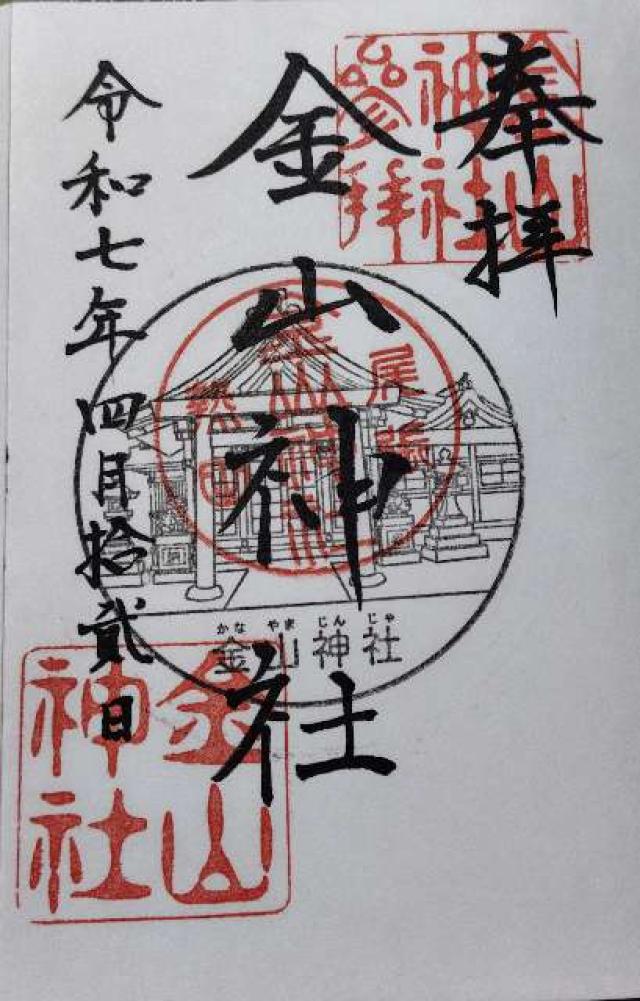 奉拝
金山神社参拝
金山神社
尾張
金山神社
熱田
かなやまじんじゃ
金山神社
令和七年四月拾貳日
金山神社